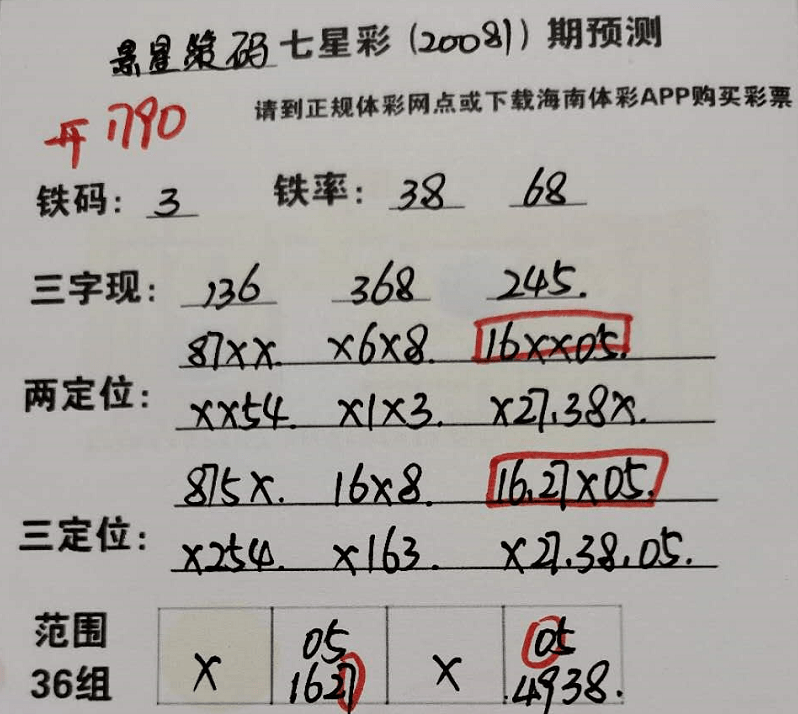 景星策码七星彩(20081)期预测
开1790
请到正规体彩网点或下载海南体彩APP购买彩票
铁码: 3 铁率: 38 68
三字现: 136 368 245.
87XX. X6X8. 16XX05.
两定位:
XX54. X1X3. X27.38X.
875X. 16X8. 16.27X05.
三定位:
X254. X163. X27.38.05.
范围 05 05
36组 X 1627 X 4938.